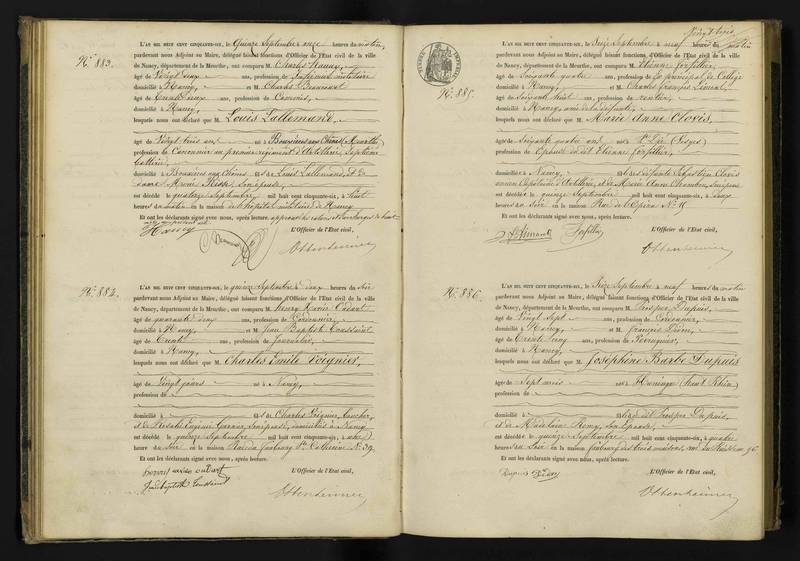 N.° 883.
L'AN MIL HUIT CENT CINQUANTE-SIX, le Quinze Septembre à onze heures du matin,
pardevant nous Adjoint au Maire, délégué faisant fonctions d'Officier de l'Etat civil de la ville
de Nancy, département de la Meurthe, ont comparu M. Charles
âgé de Vingt ans, profession de
domicilié à Nancy, et M. Charles
âgé de Trente ans, profession de
domicilié à Nancy,
lesquels nous ont déclaré que M. Louis Lallemand,
âgé de Vingt trois ans né à Bouxières aux Chênes (Meurthe)
profession de Canonnier au premier régiment d'Artillerie, septième
batterie,
domicilié à Bouxières aux Chênes fils de Louis Lallemand, et de
Marie son épouse,
est décédé le quatorze Septembre, mil huit cent cinquante-six, à huit
heures du matin en la maison de l'hôpital militaire de Nancy
Et ont les déclarants signé avec nous, après lecture,
L'Officier de l'Etat civil,
Ottenheimer
N.° 884.
L'AN MIL HUIT CENT CINQUANTE-SIX, le quinze Septembre à deux heures du soir
pardevant nous Adjoint au Maire, délégué faisant fonctions d'Officier de l'Etat civil de la ville
de Nancy, département de la Meurthe, ont comparu M. Henry Xavier
âgé de quarante deux ans, profession de Cordonnier,
domicilié à Nancy, et M. Jean Baptiste Toussaint
âgé de Trente ans, profession de Journalier,
domicilié à Nancy,
lesquels nous ont déclaré que M. Charles Emile Voignier,
âgé de Vingt jours né à Nancy,
profession de
domicilié à fils de Charles Voignier,
et de Eugénie Garnier, son épouse, domiciliés à Nancy
est décédé le quinze Septembre mil huit cent cinquante-six, à
heure du soir en la maison faubourg S.te Catherine N.° 39
Et ont les déclarants signé avec nous, après lecture.
L'Officier de l'Etat civil,
Jean baptiste Toussaint
Ottenheimer
N.° 885.
L'AN MIL HUIT CENT CINQUANTE-SIX, le Seize Septembre à neuf heures du matin
pardevant nous Adjoint au Maire, délégué faisant fonctions d'Officier de l'Etat civil de la ville
de Nancy, département de la Meurthe, ont comparu M. Etienne
âgé de Soixante quatre ans, profession de principal de Collège
domicilié à Nancy, et M. Charles François
âgé de Soixante huit ans, profession de rentier,
domicilié à Nancy, ami de la défunte,
lesquels nous ont déclaré que M. Marie Anne Clovis,
âgée de Soixante quatre ans née à S.t Dié (Vosges)
profession de Epouse du dit Etienne
domiciliée à Nancy fille des défunts Sébastien Clovis
ancien Capitaine d'Artillerie, et de Marie Anne
est décédée le quinze Septembre mil huit cent cinquante-six, à deux
heures du soir en la maison Rue de l'Opéra N.°
Et ont les déclarants signé avec nous, après lecture.
L'Officier de l'Etat civil,
Ottenheimer
N.° 886.
L'AN MIL HUIT CENT CINQUANTE-SIX, le Seize Septembre à neuf heures du matin
pardevant nous Adjoint au Maire, délégué faisant fonctions d'Officier de l'Etat civil de la ville
de Nancy, département de la Meurthe, ont comparu M. Prosper Dupuis,
âgé de Vingt Sept ans, profession de Cordonnier,
domicilié à Nancy, et M. François
âgé de Trente cinq ans, profession de Perruquier,
domicilié à Nancy,
lesquels nous ont déclaré que M. Joséphine Barbe Dupuis
âgée de Sept mois née à Huningue (haut Rhin)
profession de
domiciliée à fille du dit Prosper Dupuis,
et de Madeleine Remy, son épouse,
est décédée le quinze Septembre mil huit cent cinquante-six, à quatre
heures du soir en la maison faubourg des trois maisons,
Et ont les déclarants signé avec nous, après lecture.
L'Officier de l'Etat civil,
Dupuis
Ottenheimer